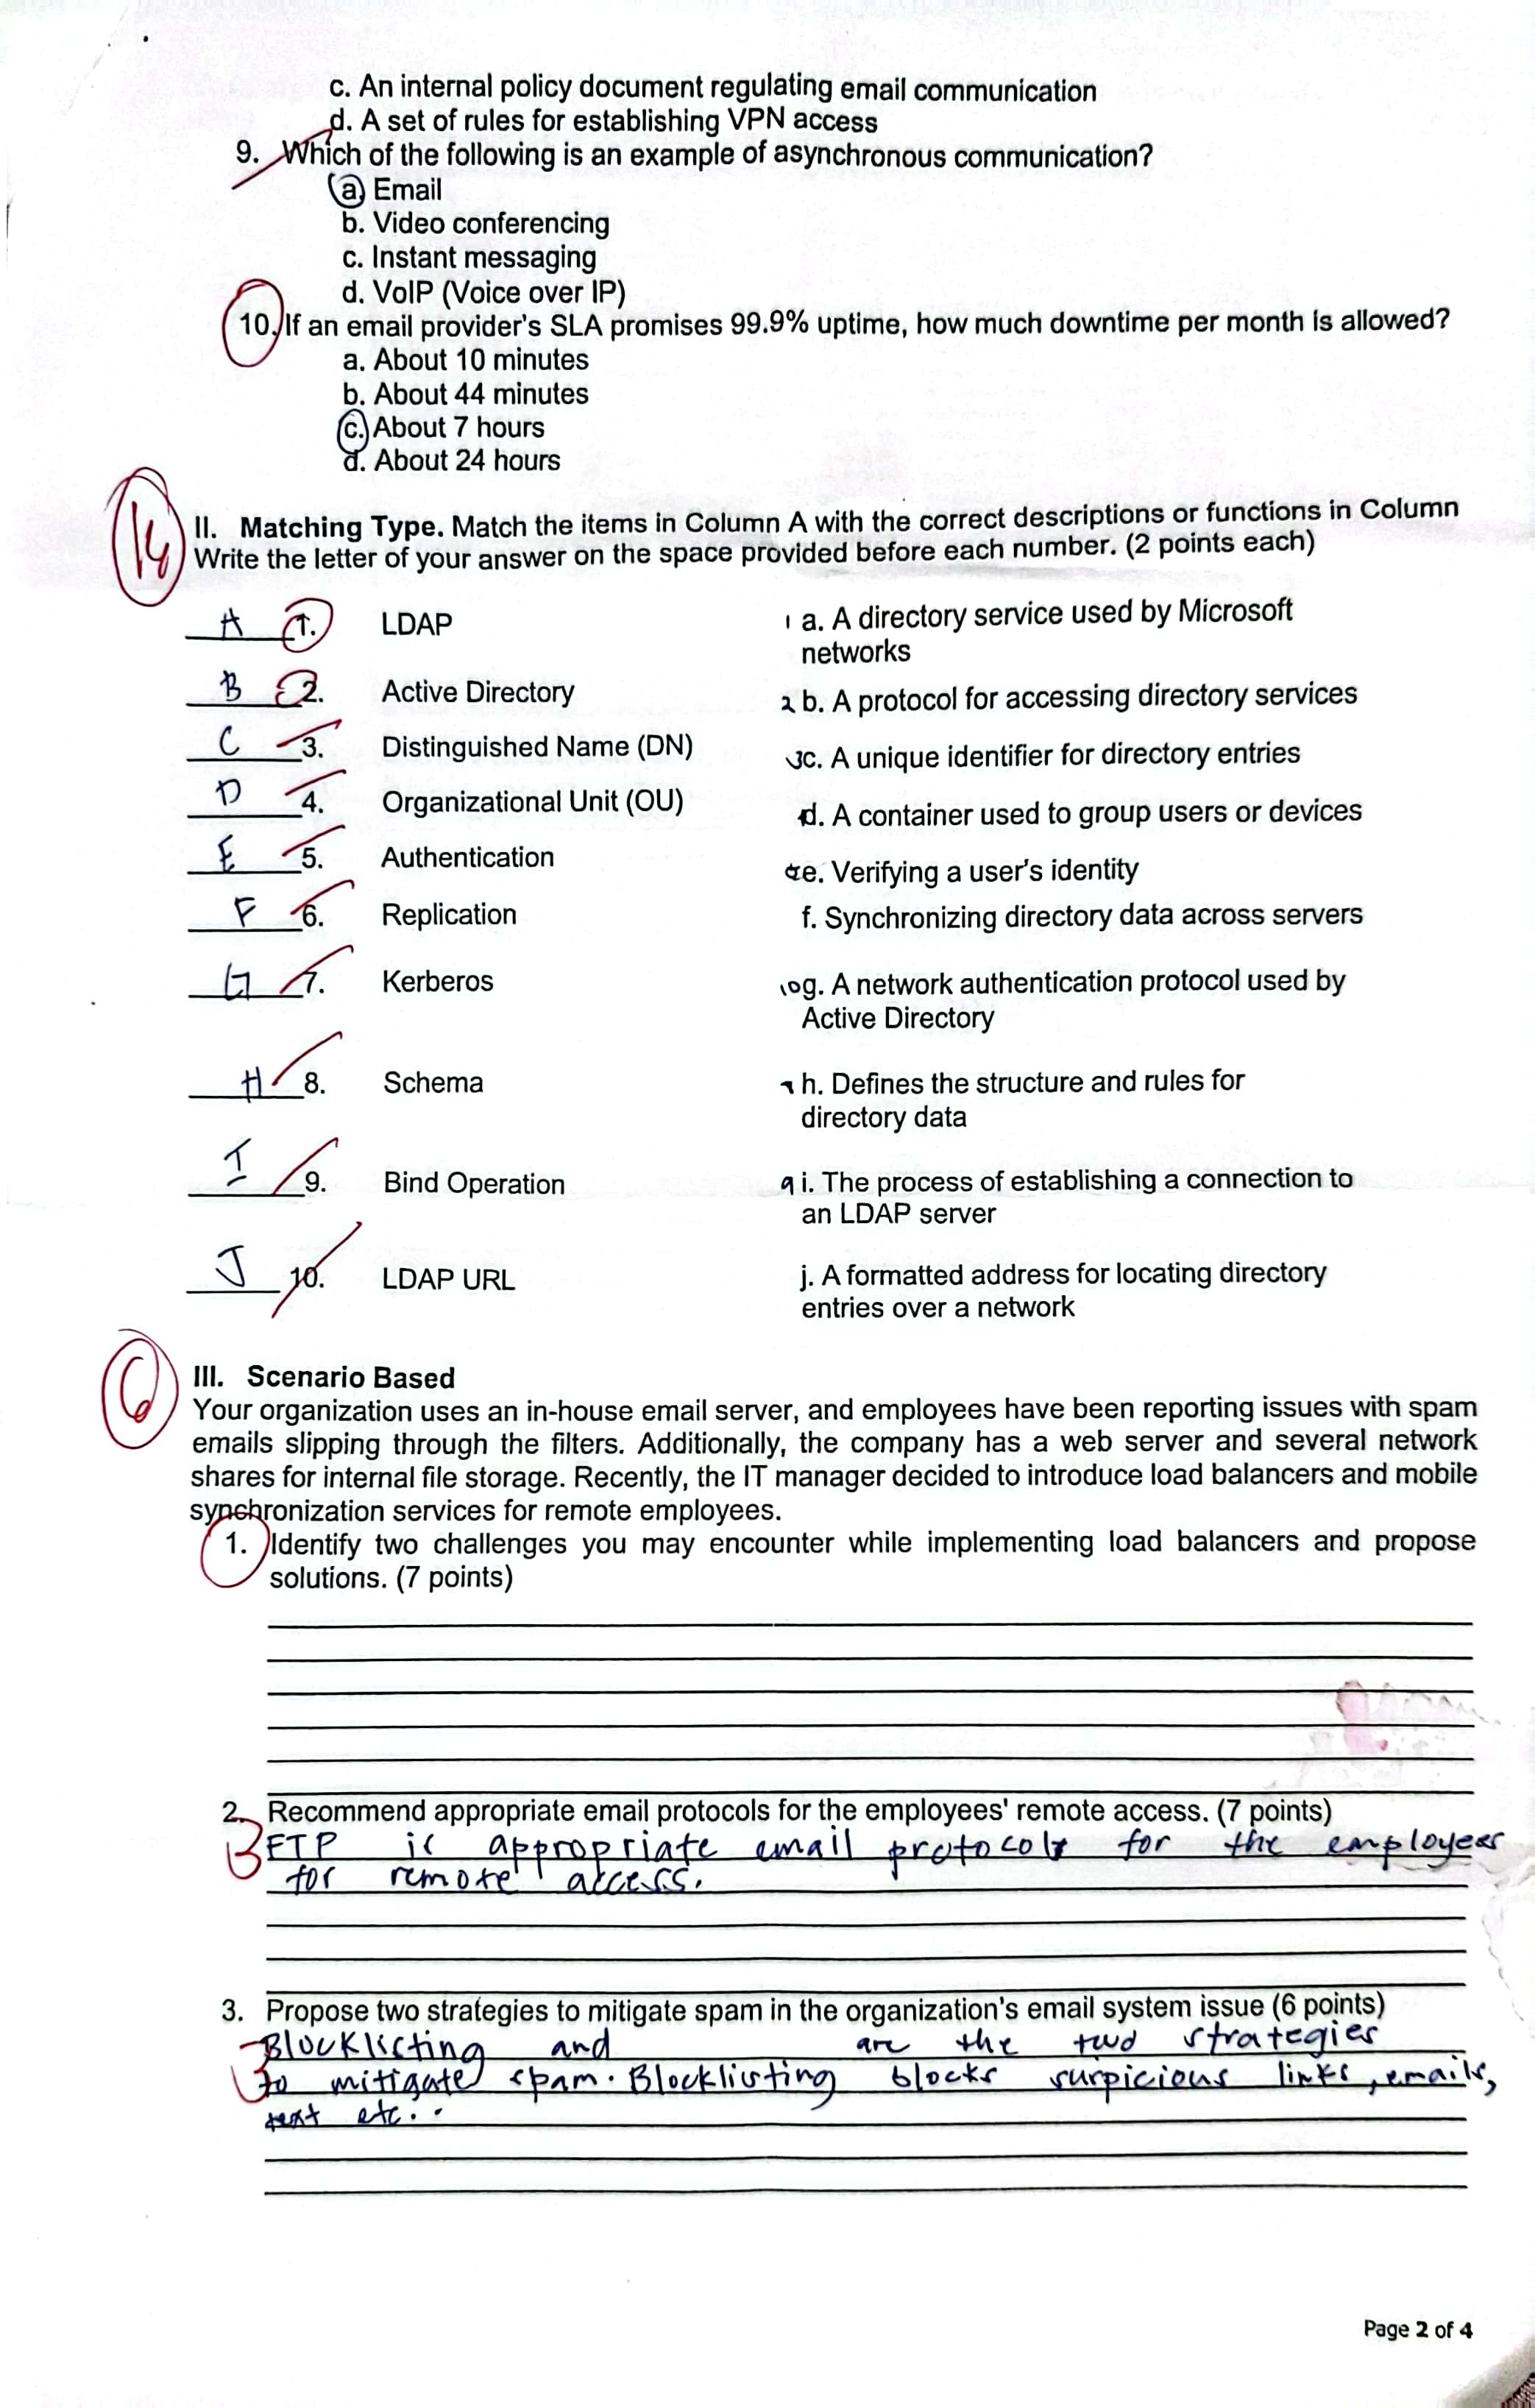 c. An internal policy document regulating email communication
d. A set of rules for establishing VPN access
9. Which of the following is an example of asynchronous communication?
a. Email
b. Video conferencing
c. Instant messaging
d. VoIP (Voice over IP)
10. If an email provider's SLA promises 99.9% uptime, how much downtime per month is allowed?
a. About 10 minutes
b. About 44 minutes
c. About 7 hours
d. About 24 hours
14
II. Matching Type. Match the items in Column A with the correct descriptions or functions in Column
Write the letter of your answer on the space provided before each number. (2 points each)
A 1. LDAP 1 a. A directory service used by Microsoft
networks
B 2. Active Directory 2 b. A protocol for accessing directory services
C 3. Distinguished Name (DN) 3 c. A unique identifier for directory entries
D 4. Organizational Unit (OU) d. A container used to group users or devices
E 5. Authentication e. Verifying a user's identity
F 6. Replication f. Synchronizing directory data across servers
G 7. Kerberos 10 g. A network authentication protocol used by
Active Directory
H 8. Schema h. Defines the structure and rules for
directory data
I 9. Bind Operation 9 i. The process of establishing a connection to
an LDAP server
J 10. LDAP URL j. A formatted address for locating directory
entries over a network
6
III. Scenario Based
Your organization uses an in-house email server, and employees have been reporting issues with spam
emails slipping through the filters. Additionally, the company has a web server and several network
shares for internal file storage. Recently, the IT manager decided to introduce load balancers and mobile
synchronization services for remote employees.
1. Identify two challenges you may encounter while implementing load balancers and propose
solutions. (7 points)
2. Recommend appropriate email protocols for the employees' remote access. (7 points)
3 FTP is appropriate email protocols for the employees
for remote access.
3. Propose two strategies to mitigate spam in the organization's email system issue (6 points)
3 Blocklisting and are the two strategies
to mitigate spam. Blocklisting blocks suspicious links, emails,
text etc..
Page 2 of 4